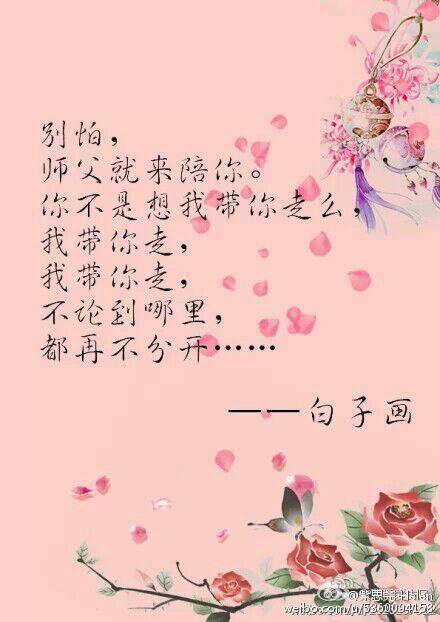 别怕，
师父就来陪你。
你不是想我带你走么，
我带你走，
我带你走，
不论到哪里，
都再不分开……
——白子画
weibo.com/p/5360094158